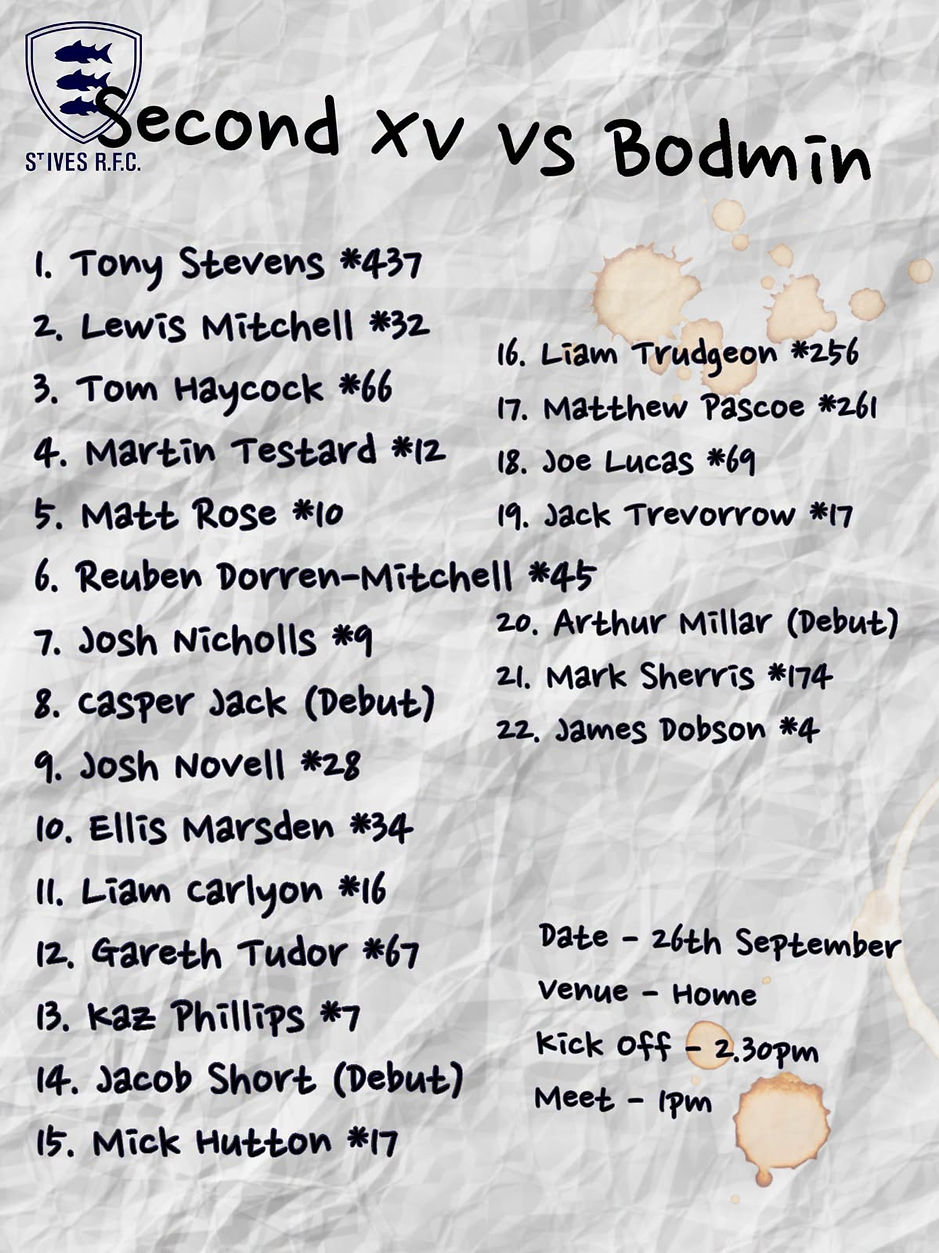 Second XV vs Bodmin
SᵀIVES R.F.C.
1. Tony Stevens *437
2. Lewis Mitchell *32
3. Tom Haycock *66
4. Martin Testard *12
5. Matt Rose *10
6. Reuben Dorren-Mitchell *45
7. Josh Nicholls *9
8. Casper Jack (Debut)
9. Josh Novell *28
10. Ellis Marsden *34
11. Liam Carlyon *16
12. Gareth Tudor *67
13. Kaz Phillips *7
14. Jacob Short (Debut)
15. Mick Hutton *17
16. Liam Trudgeon *256
17. Matthew Pascoe *261
18. Joe Lucas *69
19. Jack Trevorrow *17
20. Arthur Millar (Debut)
21. Mark Sherris *174
22. James Dobson *4
Date - 26th September
Venue - Home
Kick Off - 2.30pm
Meet - 1pm